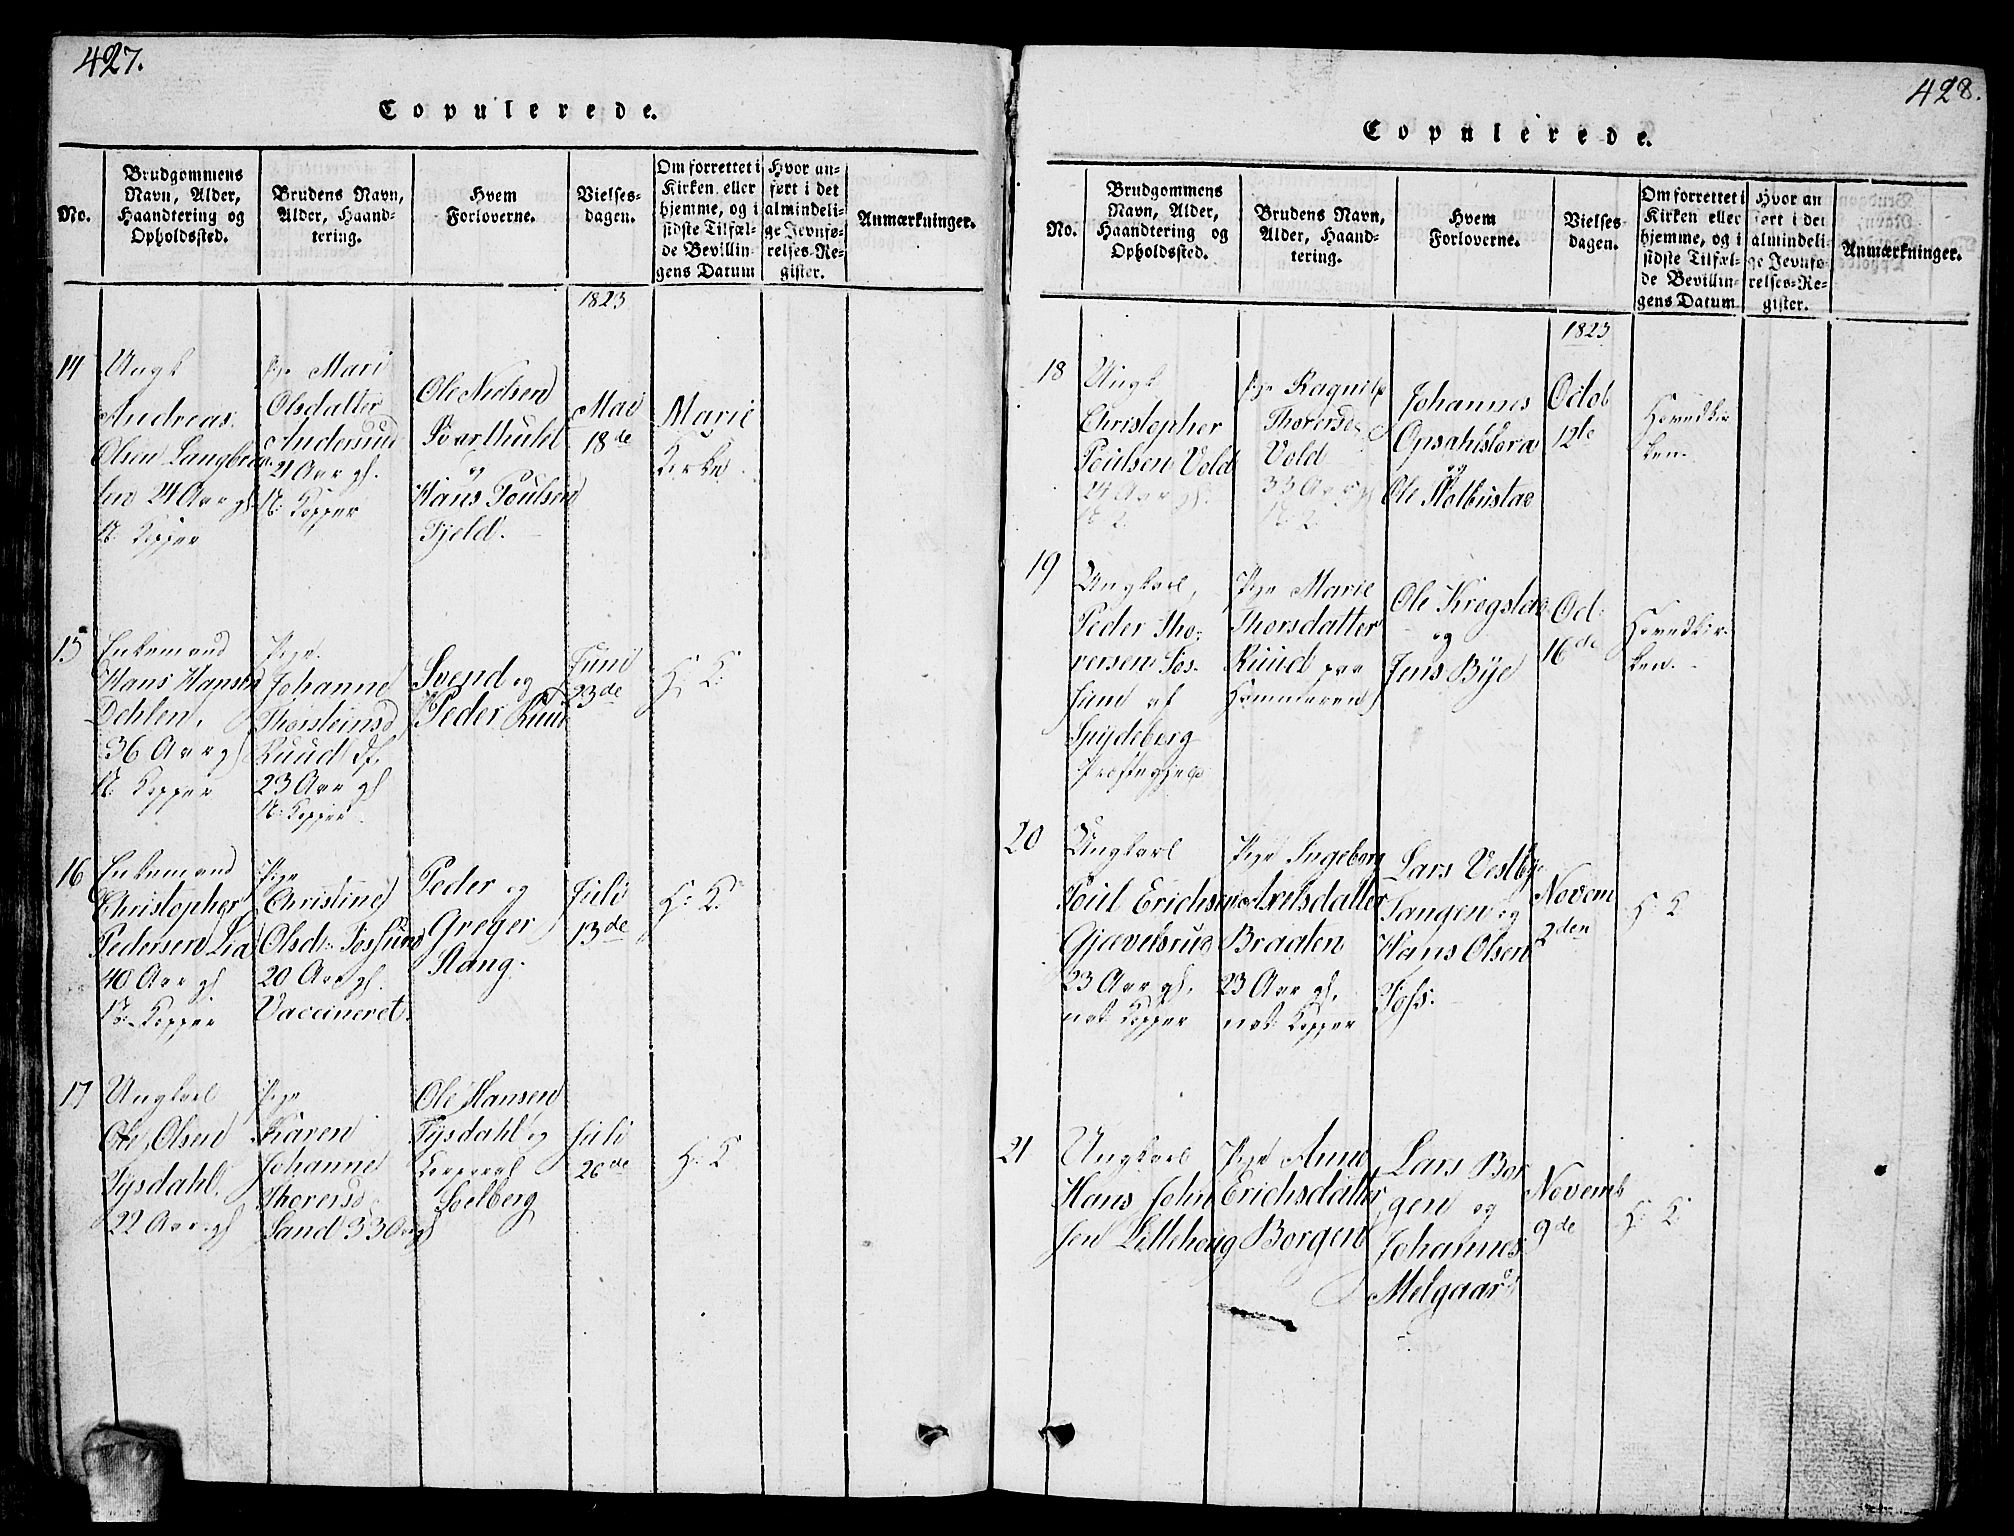 427.
Copulerede.
No.
Brudgommens
Navn, Alder,
Haandtering og
Opholdssted.
Brudens Navn,
Alder, Haand-
tering.
Hvem
Forloverne.
Vielses-
dagen.
Om forrettet i
Kirken eller
hjemme, og i
sidste Tilfæl-
de Bevillin-
gens Datum
Hvor an-
ført i det
almindeli-
ge Jevnfø-
relses-Re-
gister.
Anmærkninger.
1823
14
Ungk
Andreas
Olsen Langbra
24 Aar gl
N: Kopper
Pge Mari
Olsdatter
Andersrud
21 Aar gl.
N: Kopper
Ole Nielsen
Svarthuld
og
Hans Poulsen
Fjeld.
Mai
18de
Marie
Kirke.
15
Enkemand
Hans Hansen
Dehlen,
36 Aar gl
N: Kopper
Pige
Johanne
Thorsteinsd
Ruud
23 Aar gl
N: Kopper
Svend og
Peder Ruud
Juni
23de
H: K:
16
Enkemand
Christopher
Pedersen Lia
40 Aar gl
N: Kopper
Pige
Christine
Olsdr Fossum
20 Aar gl.
Vaccineret.
Peder og
Greger
Stang.
Juli
13de
H: K:
17
Ungkarl
Ole Olsen
Tysdahl.
22 Aar gl
Pige
Karen
Johanne
Thorersd
Sand 33 Aar gl
Ole Hansen
Tysdahl og
Korporal
Soelberg
Juli
26de
H: K
428.
Copulerede.
No.
Brudgommens
Navn, Alder,
Haandtering og
Opholdssted.
Brudens Navn,
Alder, Haand-
tering.
Hvem
Forloverne.
Vielses-
dagen.
Om forrettet i
Kirken eller
hjemme, og i
sidste Tilfæl-
de Bevillin-
gens Datum
Hvor an
ført i det
almindeli-
ge Jevnfø-
relses-Re-
gister.
Anmærkninger.
1823
18
Ungk
Christopher
Poulsen Vold
24 Aar gl.
N: K.
Pge Ragnild
Thorersd
Vold
33 Aar gl
N: K.
Johannes
Opsahlstora
og
Ole Holbustad
Octob
12te
Hovedkir
ken.
19
Ungkarl,
Peder Tho-
rersen Fos-
sum af
Spydeberg
Præstegjeld
Pige Marie
Thorsdatter
Ruud paa
Hammeren
Ole Krogstad
og
Jens Bye
Oct:
16de
Hovedkir-
ken.
20
Ungkarl
Poul Erichsen
Gjævelsrud
23 Aar gl.
nat: Kopper
Pige Ingeborg
Axelsdatter
Braaten
23 Aar gl.
nat: Kopper
Lars Vestby
Tangen og
Hans Olsen
Foss.
Novem
2den
H: K
21
Ungkarl
Hans John
sen Lillehoug
Pige Anne
Erichsdatter
Borgen
Lars Bor
gen og
Johannes
Melgaard
Novemb
9de
H: K: